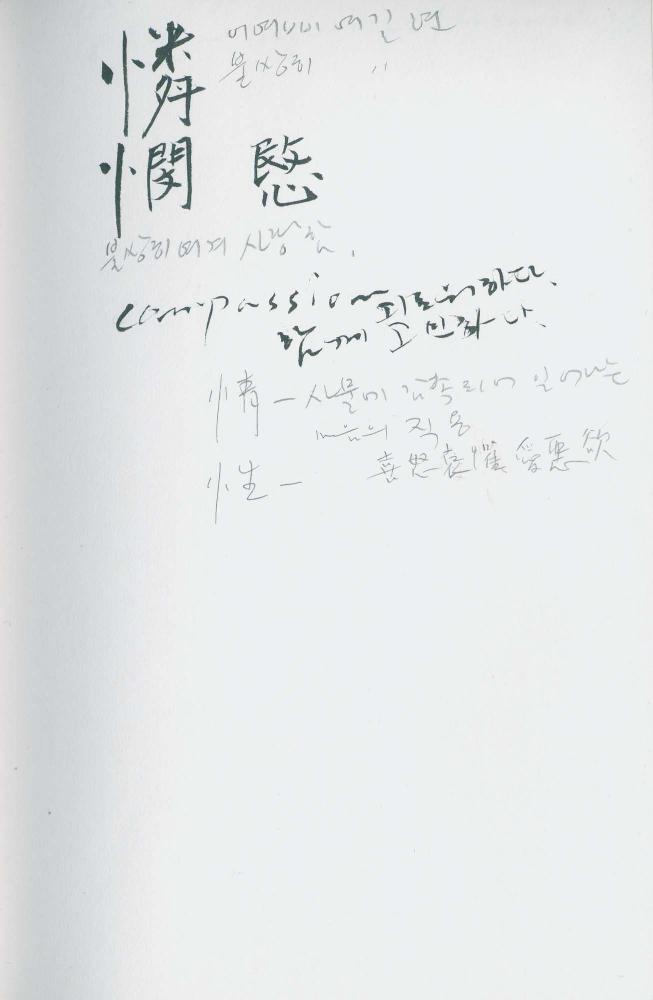 憐 어여삐 여길 련
불쌍히 〃
憫 愍
불쌍히 여겨 사랑함.
compassion 괴로워하다.
함께 고민하다.
情 - 사물에 감촉되어 일어나는
마음의 작용
性 - 喜怒哀懼愛惡欲